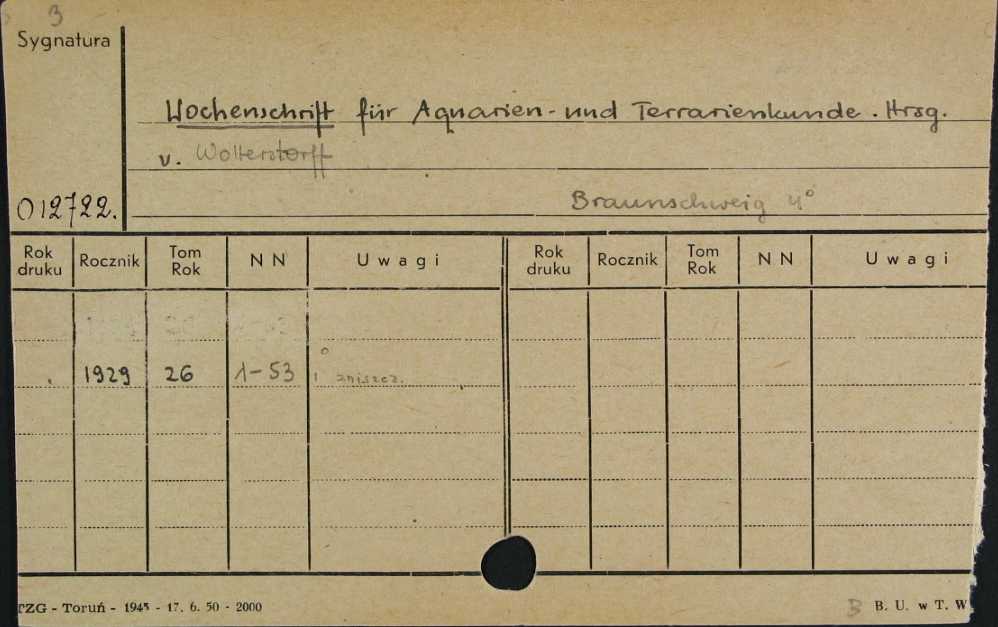 3
Sygnatura
Wochenschrift für Aquarien- und Terrarienkunde. Hrsg.
v. Wolterstorff
012722.
Braunschweig 4°
Rok druku Rocznik Tom Rok NN Uwagi Rok druku Rocznik Tom Rok NN Uwagi
1929 26 1-53 zniszcz.
TZG - Toruń - 1945 - 17. 6. 50 - 2000
B B. U. w T. W